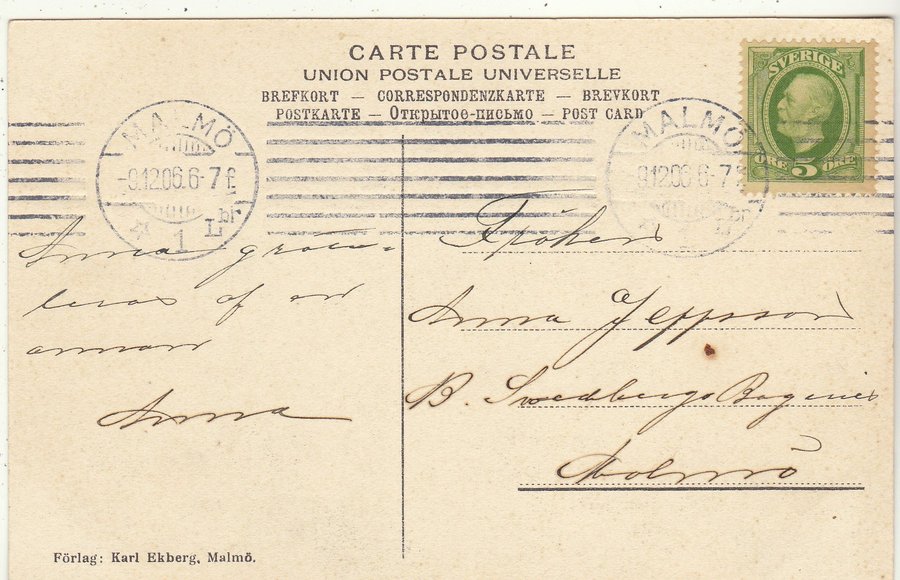 CARTE POSTALE
UNION POSTALE UNIVERSELLE
BREFKORT — CORRESPONDENZKARTE — BREVKORT
POSTKARTE — Открытое-письмо — POST CARD
SVERIGE
ÖRE 5 ÖRE
MALMÖ
-9.12.06.6-7 f
1 Lbr
MALMÖ
-9.12.06.6-7
Anna gratu-
leras af en
annan
Anna
Fröken
Anna Jeppsson
B. Svedbergs Bageri
Malmö
Förlag: Karl Ekberg, Malmö.